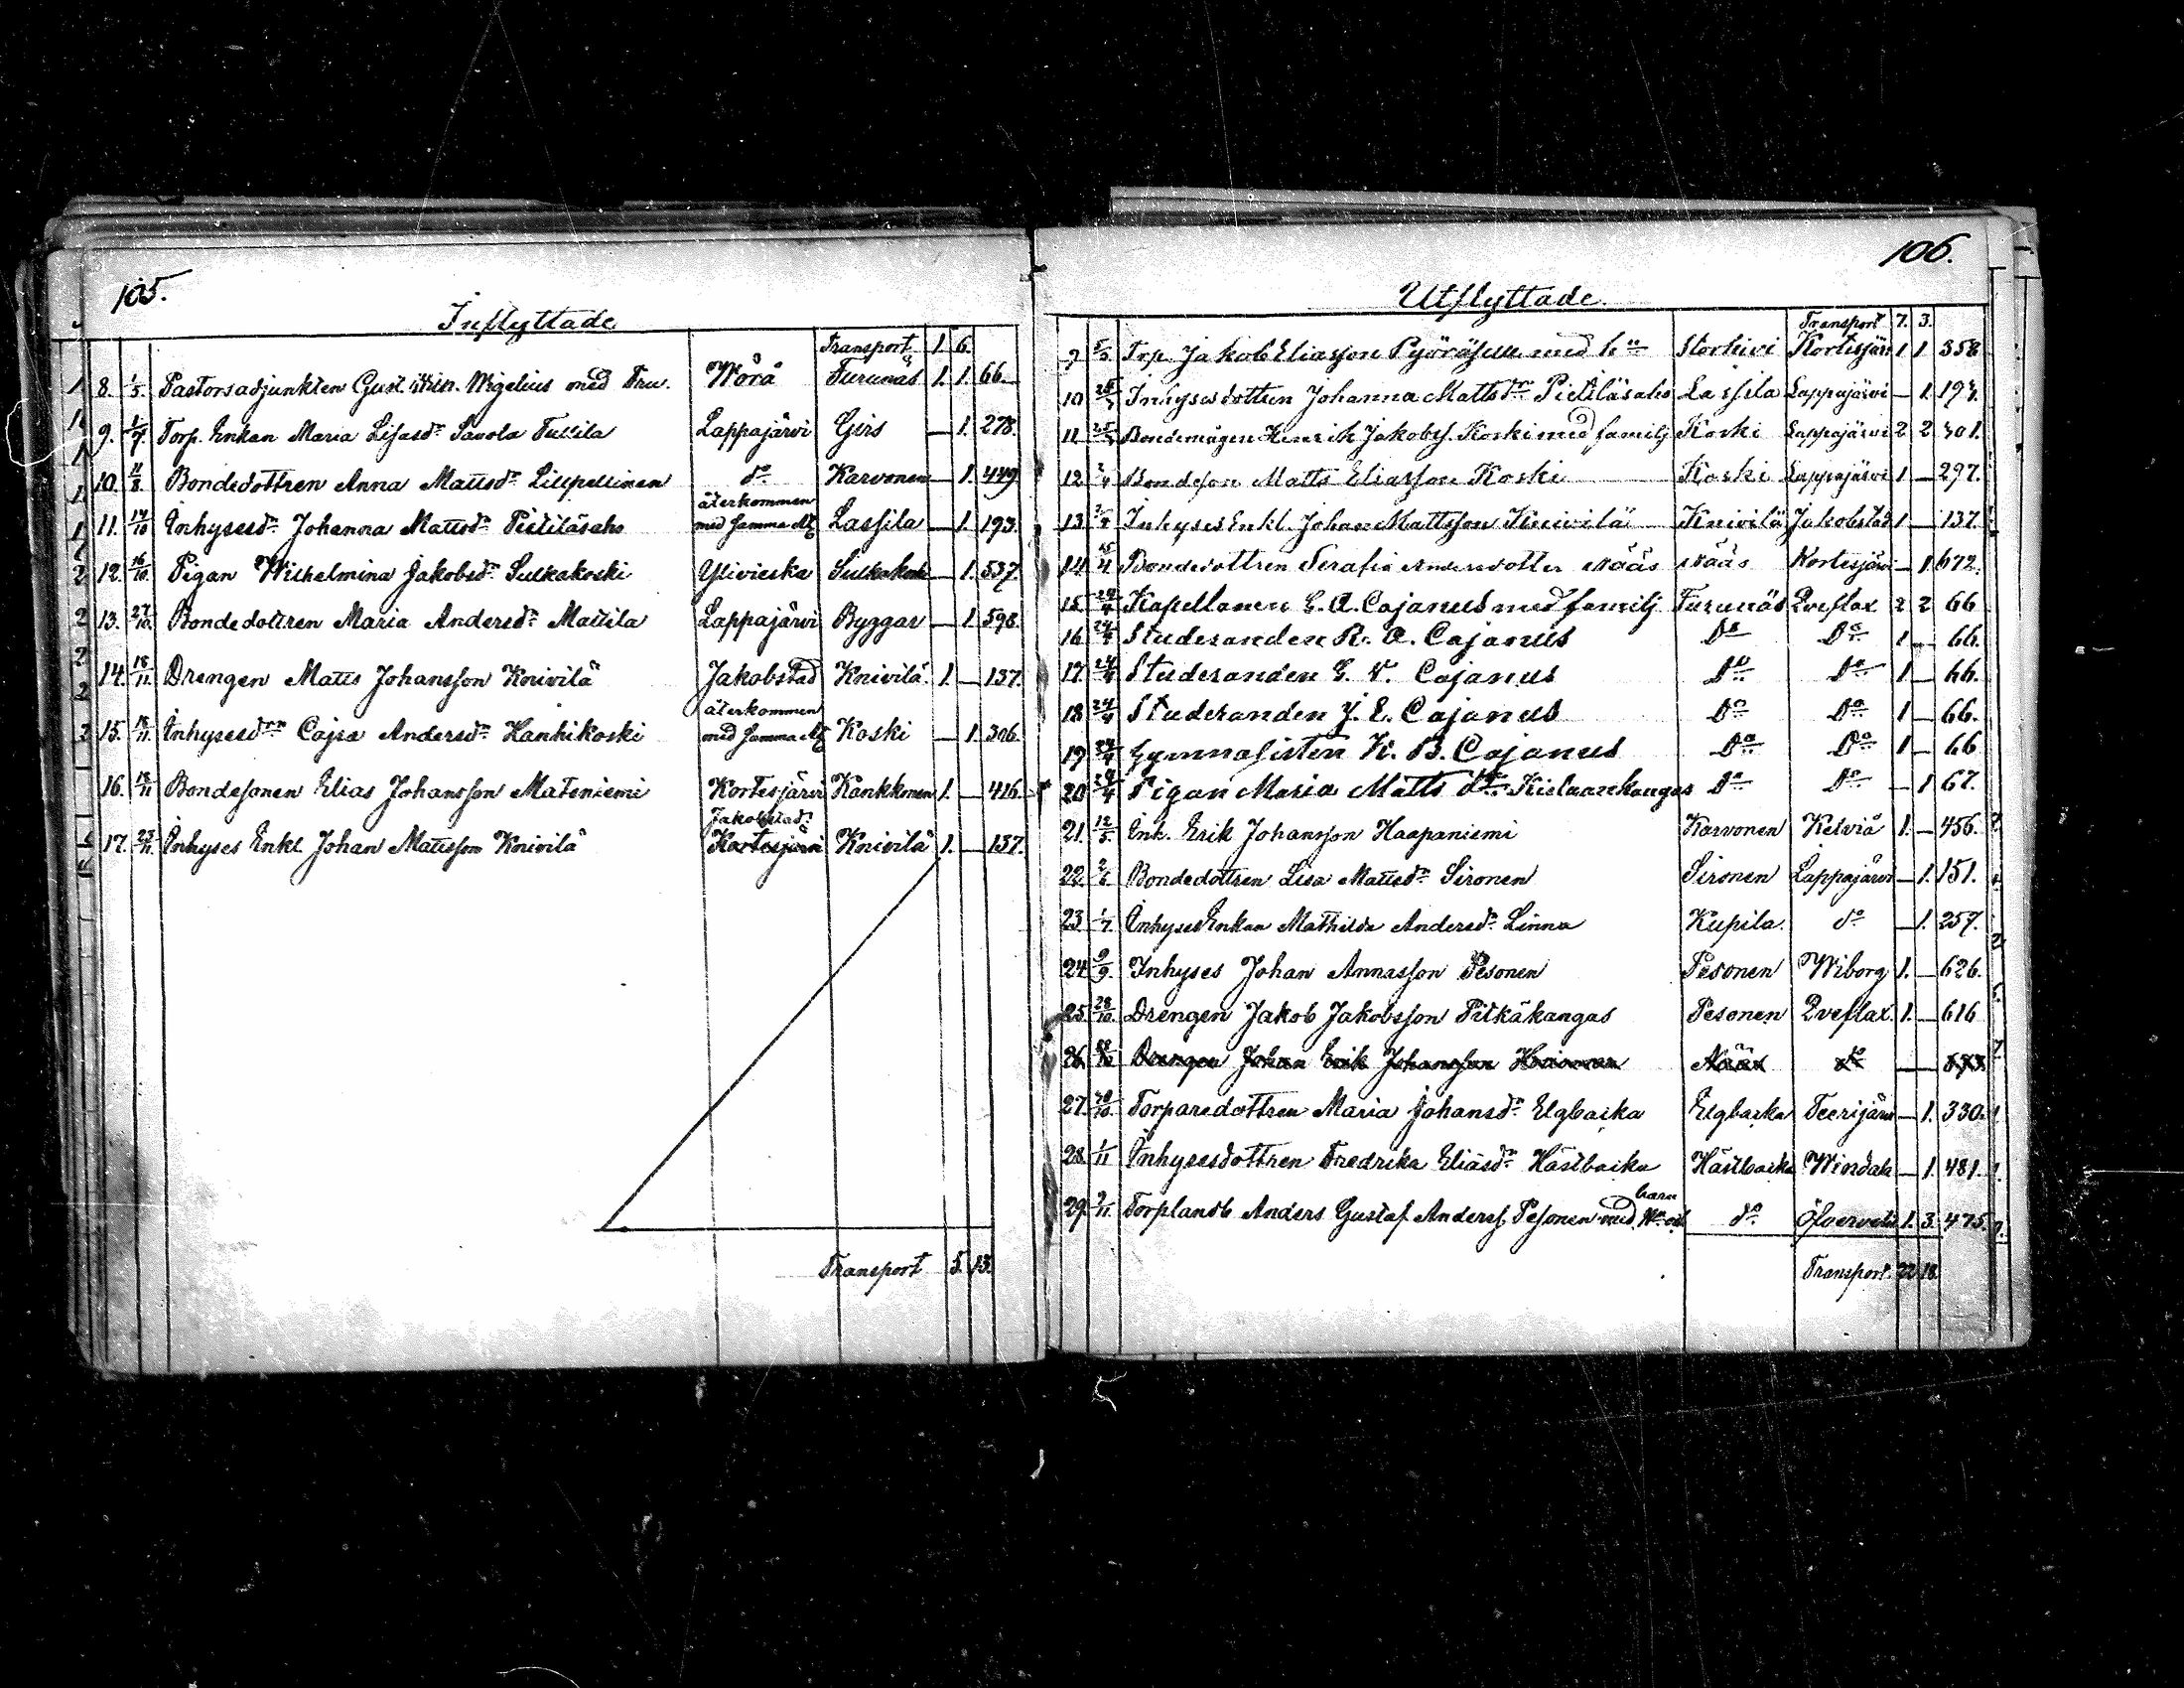 105.
Inflyttade
Transport 1. 6.
8. 1/5. Pastorsadjunkten Gust. Wilh. Wigelius med Fru. Wörå Turunäs 1. 1. 66.
9. 1/7. Torp. Enkan Maria Lisasdr Savola Tullila Lappajärvi Girs — 1. 278.
10. 11/8 Bondedottren Anna Mattsdr Lillpellinen do Karvonen — 1. 449.
återkommen
11. 14/10 Inhysesdr Johanna Mattsdr Pietiläsaho med samma Lassila — 1. 193.
12. 16/10. Pigan Wilhelmina Jakobsdr Sulkakoski Ylivieska Sulkakoski — 1. 537.
13. 27/10. Bondedottren Maria Andersdr Mattila Lappajärvi Byggar — 1. 598.
14. 18/11. Drengen Matts Johansson Knivilä Jakobstad Knivilä 1. — 137.
återkommen
15. 18/11. Inhysesdrn Cajsa Andersdr Hanhikoski med samma Koski — 1. 306.
16. 18/11 Bondesonen Elias Johansson Mateniemi Kortesjärvi Kankkonen 1. — 416.
Jakobstad
17. 23/11. Inhyses Enkl. Johan Mattsson Knivilä Kortesjärvi Knivilä 1. — 137.
Transport 5. 13.
106.
Utflyttade.
Transport 7. 3.
9 Trp. Jakob Eliasson Pyöräsell med h Storkivi Kortesjärvi 1 1 358
10 Inhysesdottren Johanna Mattsdr Pietiläsaho Lassila Lappajärvi — 1. 193.
11 Bondemågen Henrik Jakobss. Koski med familj Koski Lappajärvi 2 2 301.
12 Bondeson Matts Eliasson Koski Koski Lappajärvi 1 — 297.
13 Inhyses Enkl. Johan Mattsson Knivilä Knivilä Jakobstad 1 — 137.
14 Bondedottren Serafia Andersdotter Nääs Nääs Kortesjärvi — 1 672.
15 24/4 Kapellanen G. A. Cajanus med familj Turunäs Qveflax 2 2 66
16 24/4 Studeranden R. A. Cajanus Do Do 1 — 66.
17. 24/4 Studeranden G. V. Cajanus Do Do 1 — 66.
18 24/4 Studeranden J. E. Cajanus Do Do 1 — 66.
19 24/4 Gymnasisten K. B. Cajanus Do Do 1 — 66
20 24/4 Pigan Maria Matts dr Kielaankangas Do Do — 1 67.
21. 12/5. Inh. Erik Johansson Haapaniemi Karvonen Kelviå 1. — 456.
22. 2/6 Bondedottren Lisa Mattsdr Sironen Sironen Lappajärvi — 1. 151.
23. 1/7. Inhyses Enkan Mathilda Andersdr Linna Kupila. do — 1. 257.
24. 9/9. Inhyses Johan Annasson Pesonen Pesonen Wiborg 1. — 626.
25. 28/10. Drengen Jakob Jakobsson Pitkäkangas Pesonen Qveflax. 1. — 616
26. Drengen Johan Erik Johansson Nääs do — 673.
27. 30/10. Torparedottren Maria Johansdr Elgbacka Elgbacka Teerijärvi — 1. 330.
28. 1/11 Inhysesdottren Fredrika Eliasdr Hästbacka Hästbacka Windala — 1. 481.
barn
29. 9/11. Torplandb Anders Gustaf Anderss. Pesonen med do Öfvervetil 1. 3. 475.
Transport. 22 18.